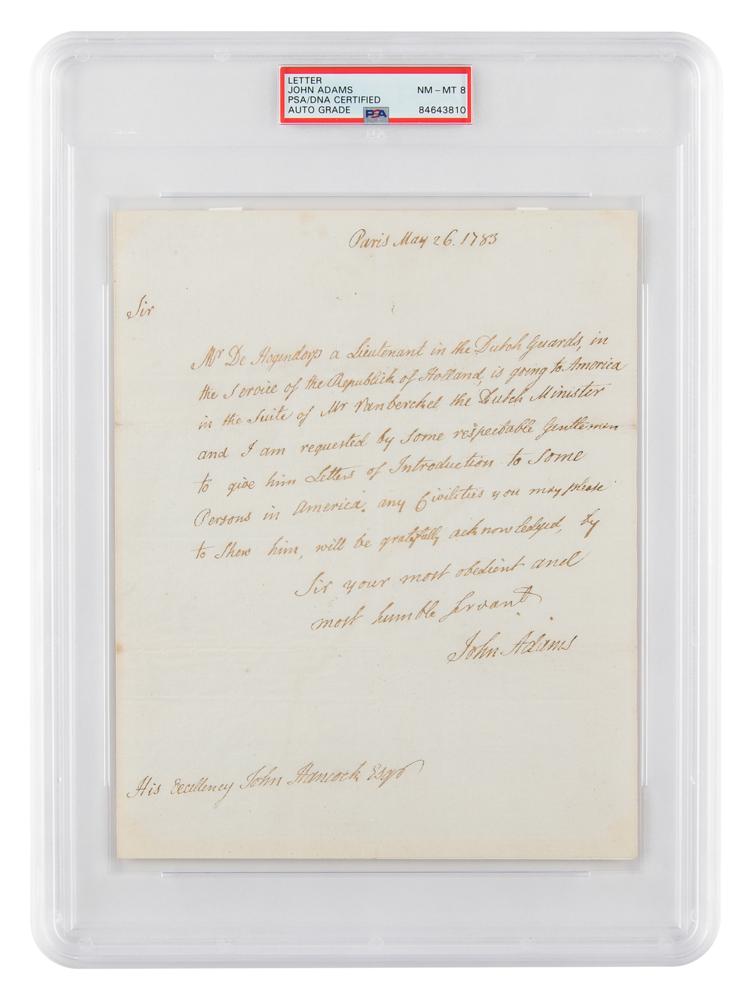 LETTER
JOHN ADAMS NM – MT 8
PSA/DNA CERTIFIED
AUTO GRADE PSA 84643810
Paris May 26. 1783
Sir
Mr De Hogendorp a Lieutenant in the Dutch Guards, in
the Service of the Republick of Holland, is going to America
in the Suite of Mr Vanberckel the Dutch Minister
and I am requested by Some respectable Gentlemen
to give him Letters of Introduction to Some
Persons in America. any Civilities you may please
to Shew him, will be gratefully acknowledged, by
Sir your most obedient and
most humble Servant
John Adams
His Excellency John Hancock Esqr